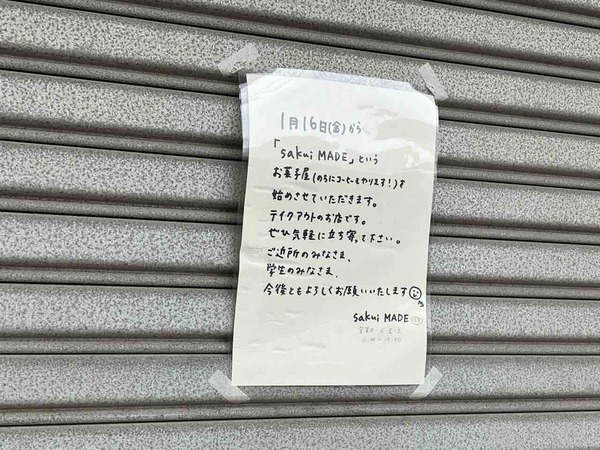 1月16日(金)から
「sakui MADE」という
お菓子屋(のちにコーヒーもやります!)を
始めさせていただきます。
テイクアウトのお店です。
ぜひ気軽に立ち寄って下さい。
ご近所のみなさま、
学生のみなさま、
今後ともよろしくお願いいたします
sakui MADE
営業日